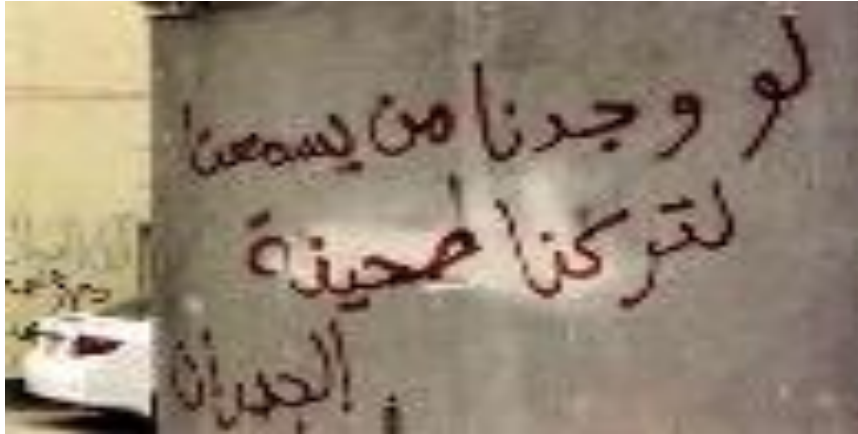 لو وجدنا من يسمعنا
لتركنا طحينة
الجدران